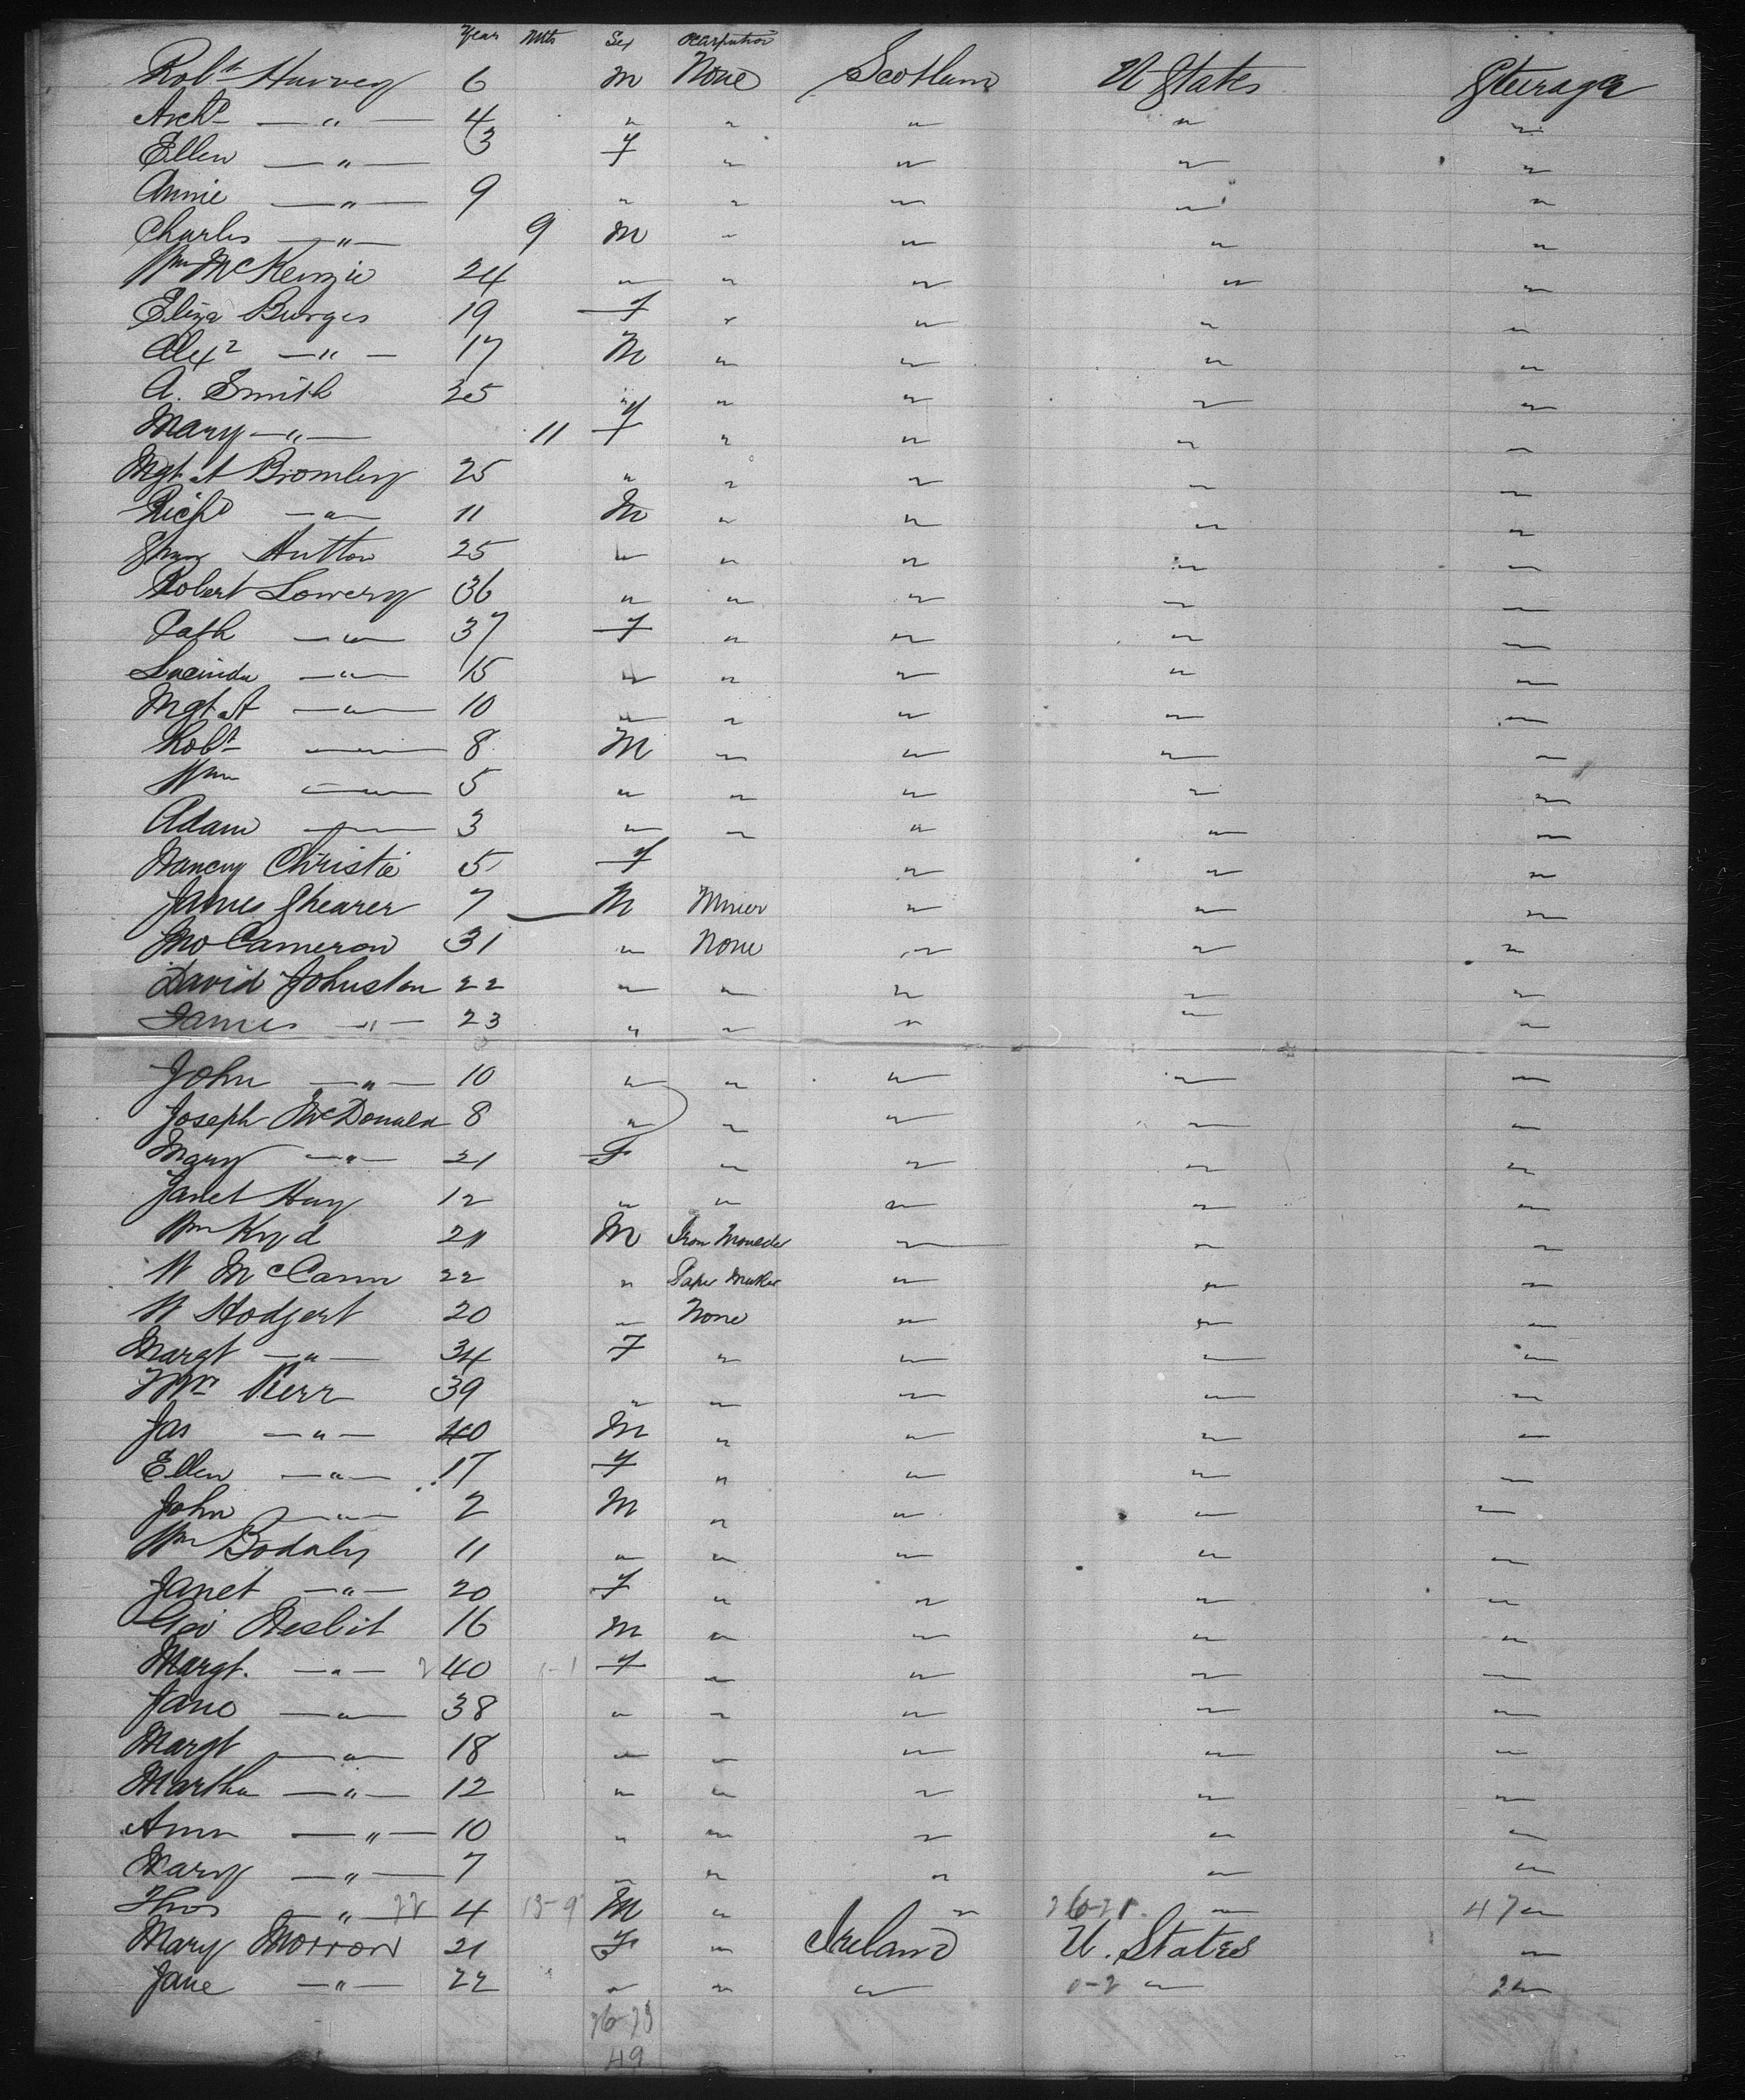 Year Mths Sex Occupation
Robt Harvey 6 M None Scotland U States Steerage
Archd — " — 4 " " " " "
Ellen — " — 3 F " " " "
Annie — " — 9 " " " " "
Charles — " — 9 M " " " "
Wm McKenzie 24 " " " " "
Eliza Burges 19 F " " " "
Alexr — " — 17 M " " " "
A. Smith 25 " " " " "
Mary — " — 11 F " " " "
Mgt Bromley 25 " " " " "
Richd — " — 11 M " " " "
Hutton 25 " " " " "
Robert Lowery 36 " " " " "
Cath — " — 37 F " " " "
Lucinda — " — 15 " " " " "
Mgt — " — 10 " " " " "
Robt — " — 8 M " " " "
Wm — " — 5 " " " " "
Adam — " — 3 " " " " "
Nancy Christie 5 F " " "
James Shearer 7 M Miner " " "
Jno Cameron 31 " None " " "
David Johnston 22 " " " " "
James — " — 23 " " " " "
John — " — 10 " " " " "
Joseph McDonald 8 " " " " "
Mary — " — 21 F " " " "
Janet Hay 12 " " " " "
Wm Kyd 21 M Iron Moulder " " "
W McCann 22 " Paper Maker " " "
W Hodgert 20 " None " " "
Margt — " — 34 F " " " "
Kerr 39 " " " " "
Jas — " — 40 M " " " "
Ellen — " — 17 F " " " "
John — " — 2 M " " " "
Wm Bodaly 11 " " " " "
Janet — " — 20 F " " " "
Geo Nesbit 16 M " " " "
Margt. — " — 40 F " " " "
Jane — " — 38 " " " " "
Margt — " — 18 " " " " "
Martha — " — 12 " " " " "
Ann — " — 10 " " " " "
Mary — " — 7 " " " " "
Thos — " — 22 4 13-9 M " " 26-21 " 47 "
Mary Morrow 21 F " Ireland U. States "
Jane — " — 22 " " " 0-2 " 2 "
26-23
49